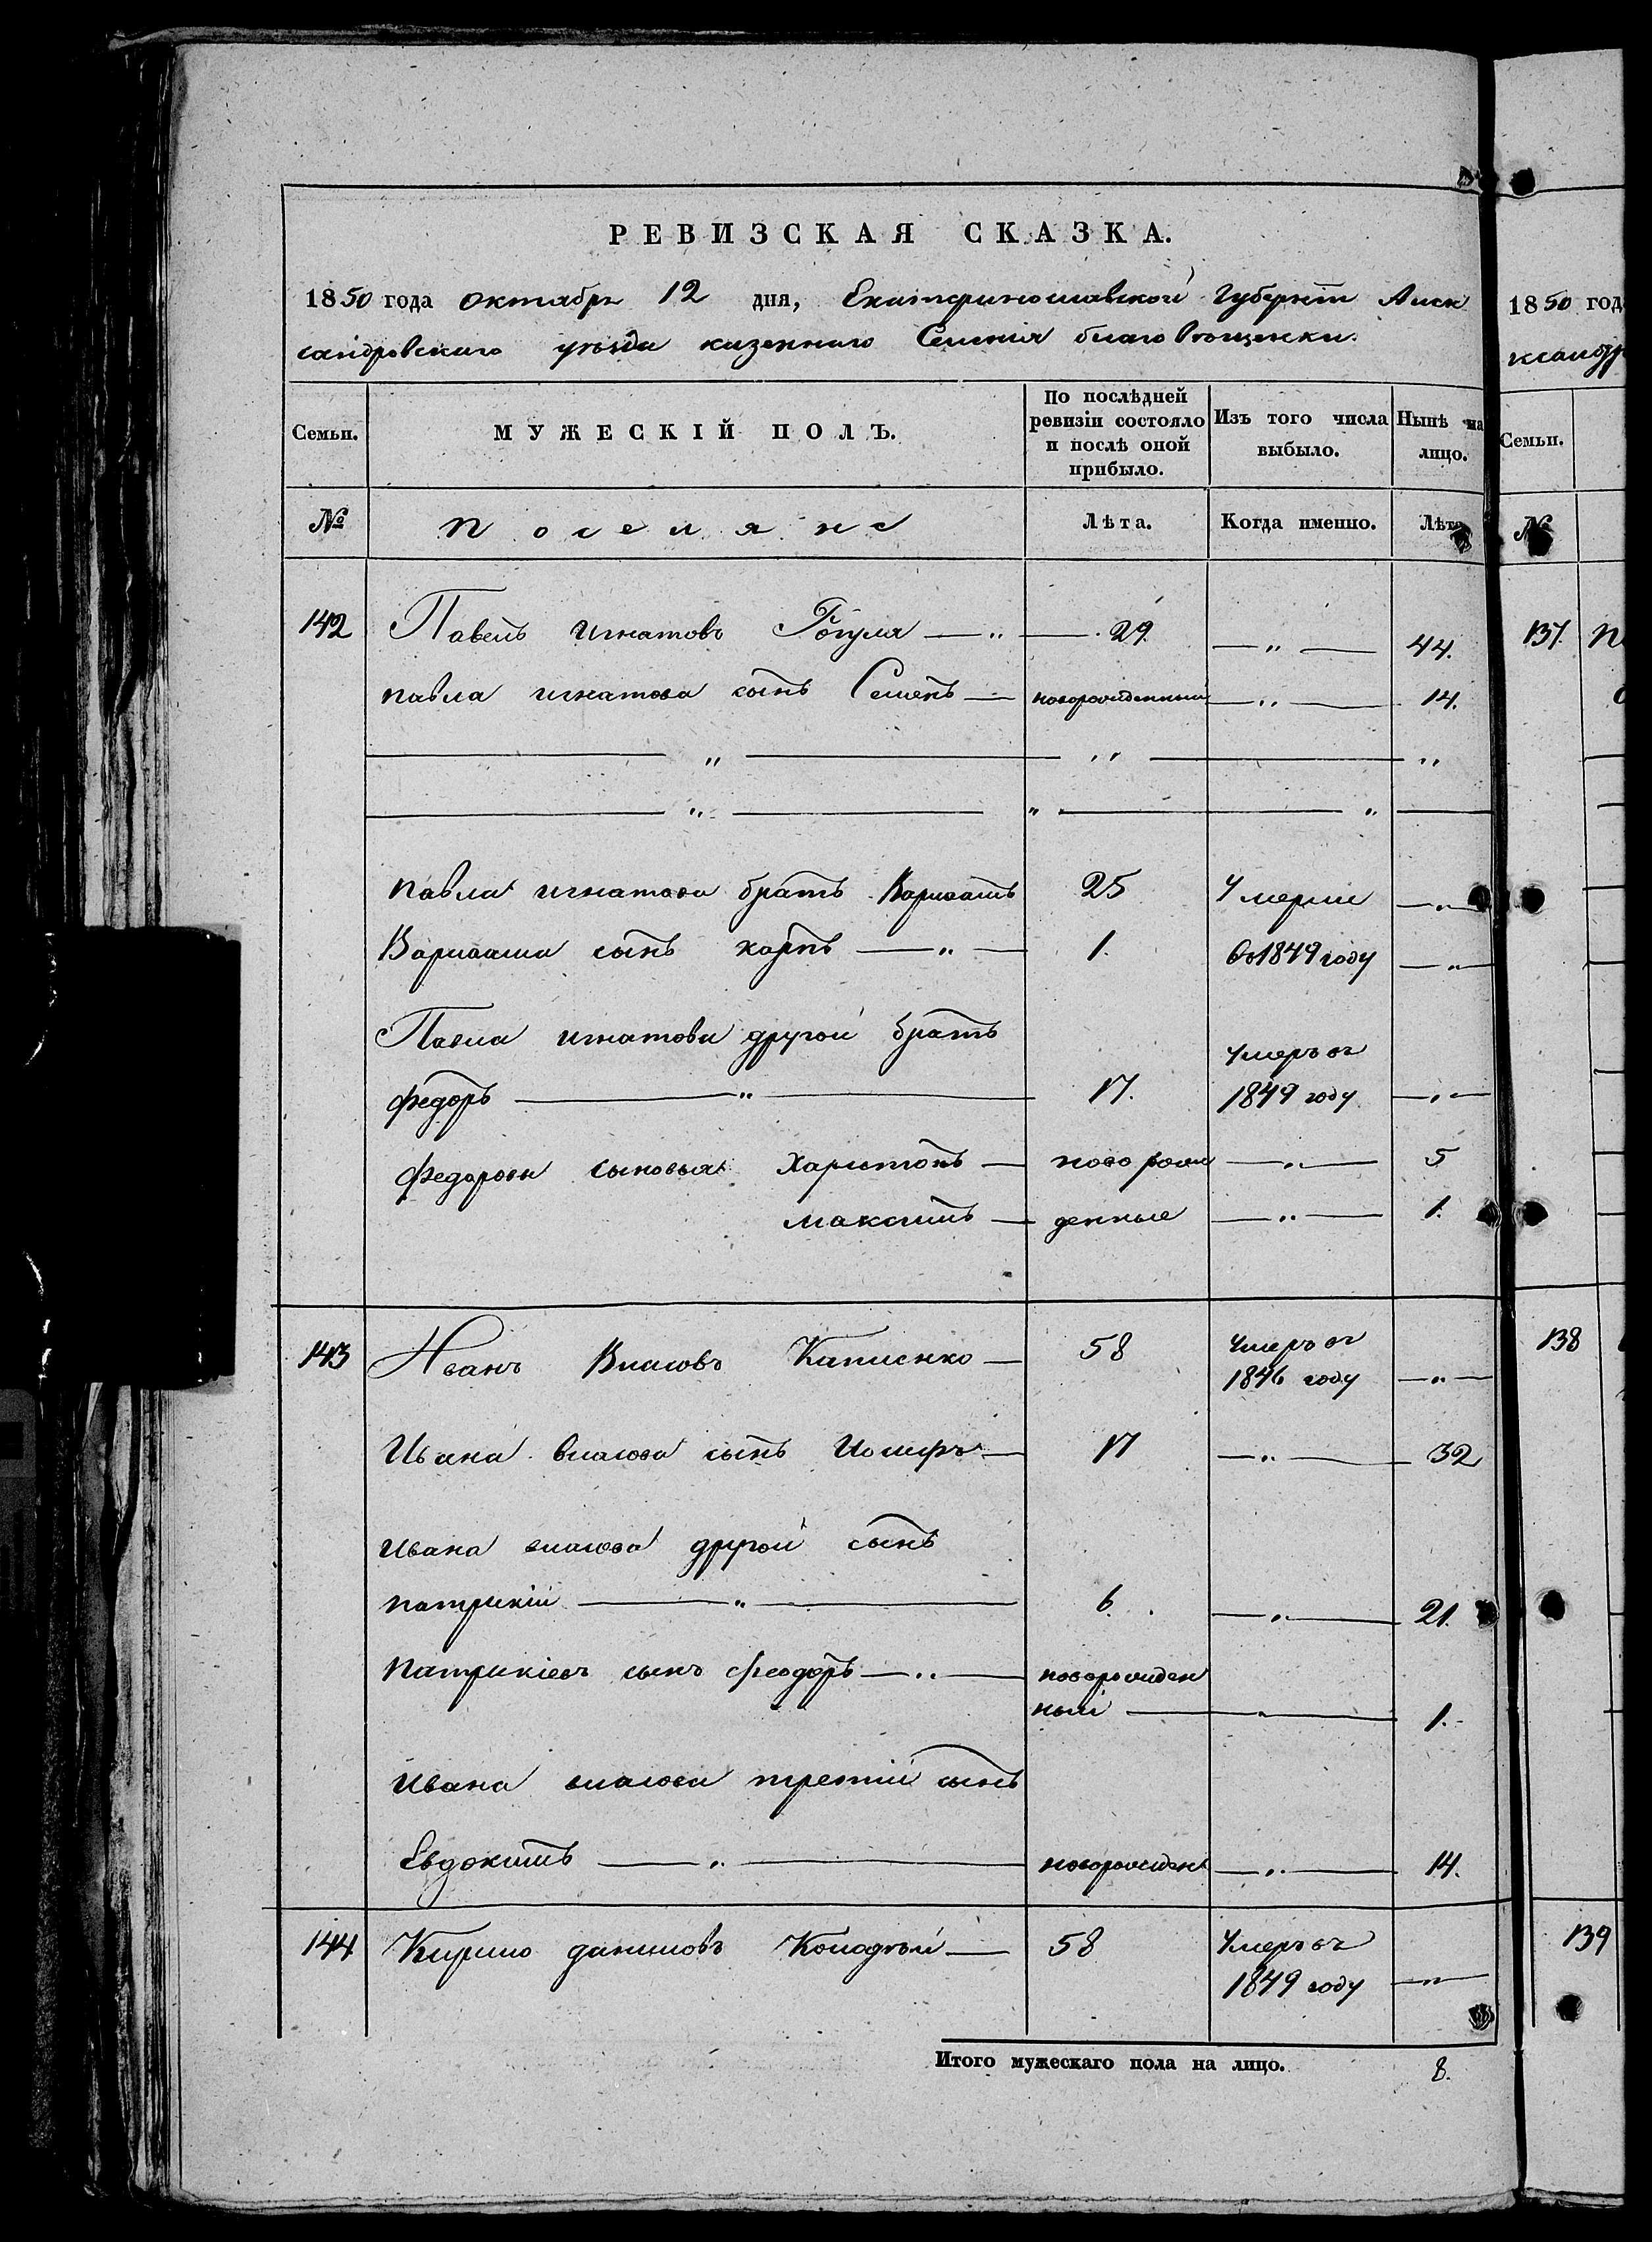 РЕВИЗСКАЯ СКАЗКА.
1850 года октября 12 дня, Екатеринославской Губернiи Алек
сандровскаго уѣзда казеннаго Селенiя благовѣщенки.
Семьи.
МУЖЕСКІЙ ПОЛЪ.
По послѣдней ревизіи состояло и послѣ оной прибыло.
Изъ того числа выбыло.
Нынѣ на лицо.
№
поселяне
Лѣта.
Когда именно.
Лѣта
142 Павелъ игнатовъ Рогуля — „ — 29. — „ — 44.
павла игнатова сынъ Семенъ — новорожденный — „ — 14.
— „ — „ — „
— „ — „ — „ —
павла игнатова братъ Варлаамъ 25 Умерли — „ —
Варлаама сынъ карпъ — „ — 1. въ 1849 году — „ —
Павла игнатова другой братъ
федоръ — „ — 17. умеръ въ 1849 году — „ —
федоровы сыновья Харитонъ — новорож — „ — 5
максимъ — денные — „ — 1.
143 Иванъ Власовъ Капленко — 58 умеръ въ 1846 году — „ —
Ивана власова сынъ Иосифъ — 17 — „ — 32
Ивана власова другой сынъ
патрикiй — „ — 6. — „ — 21.
патрикiевъ сынъ феодоръ — „ — новорожден
ный — „ — 1.
Ивана власова третiй сынъ
Евдокимъ — „ — новорожден — „ — 14.
144 Кирило даниловъ Колодѣй — 58 Умеръ въ
1849 году — „ —
Итого мужескаго пола на лицо. 8.
1850 год
ксандр
Семьи.
№
137.
138
139